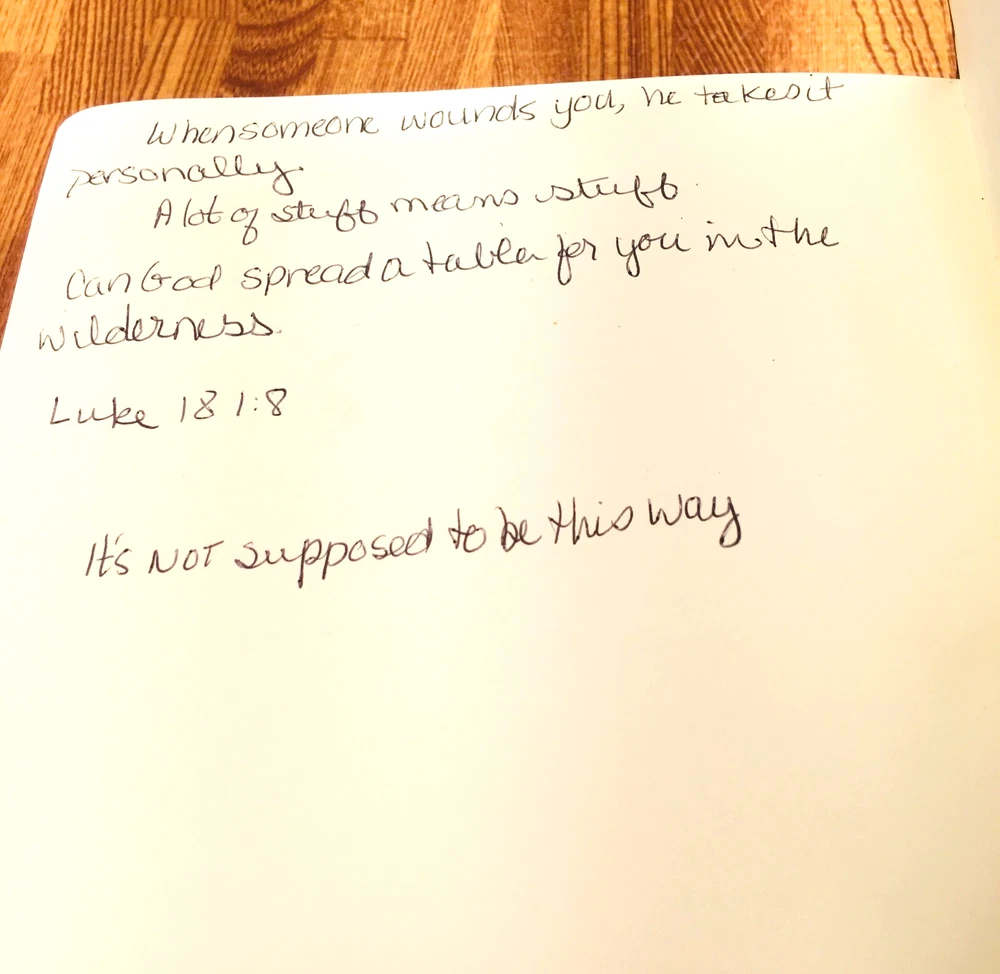 When someone wounds you, he takes it
personally.
A lot of stuff means stuff
Can God spread a table for you in the
wilderness.
Luke 18 1:8
It's NOT supposed to be this way